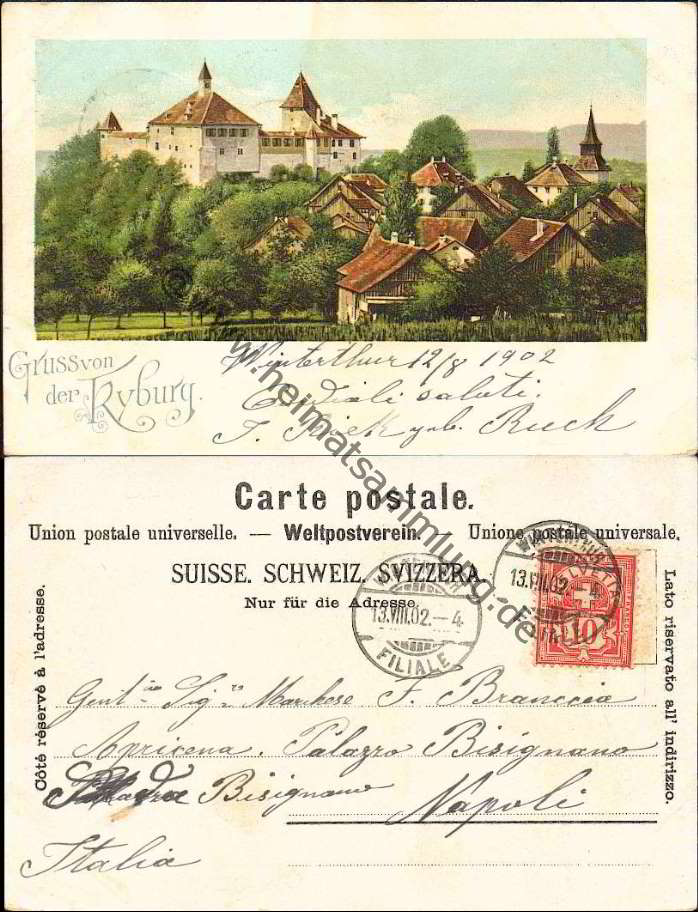 Gruss von
der Kyburg.
Winterthur 12/8 1902
Cordiali saluti.
www.heimatsammlung.de
Carte postale.
Union postale universelle. — Weltpostverein. — Unione postale universale.
SUISSE. SCHWEIZ. SVIZZERA.
Nur für die Adresse.
Côté réservé à l'adresse.
Lato riservato all' indirizzo.
WINTERTHUR
13.VIII.02.–4
FILIALE
WINTERTHUR
13.VIII.02.–4
FILIALE
10
Gent. Sig. Marchese F. Branccia
Apricena. Palazzo Bisignano
Bisignano
Napoli
Italia